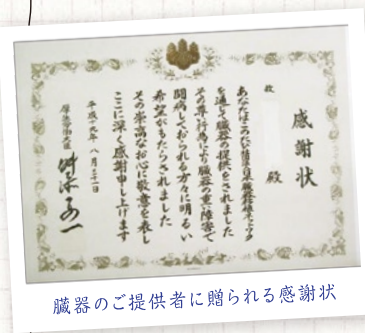 感謝状
故
殿
あなたはこのたび社団法人日本臓器移植ネットワーク
を通じて臓器の提供をされました
その尊い行為により臓器の重い障害で
闘病しておられる方々に明るい
希望がもたらされました
その崇高なお心に敬意を表し
ここに深く感謝申し上げます
平成十九年八月三十一日
厚生労働大臣
舛添要一
臓器のご提供者に贈られる感謝状